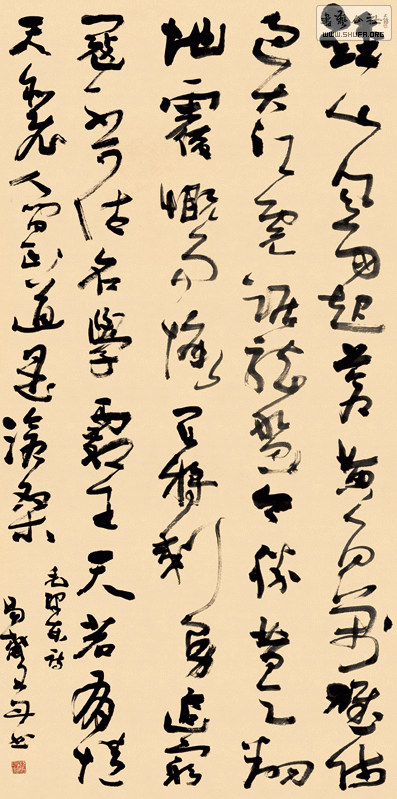 鍾山風雨起蒼黃百萬雄師
過大江虎踞龍盤今勝昔天翻
地覆慨而慷宜將剩勇追窮
寇不可沽名學霸王天若有情
天亦老人間正道是滄桑
毛澤東詩
書
WWW.SHUFA.ORG